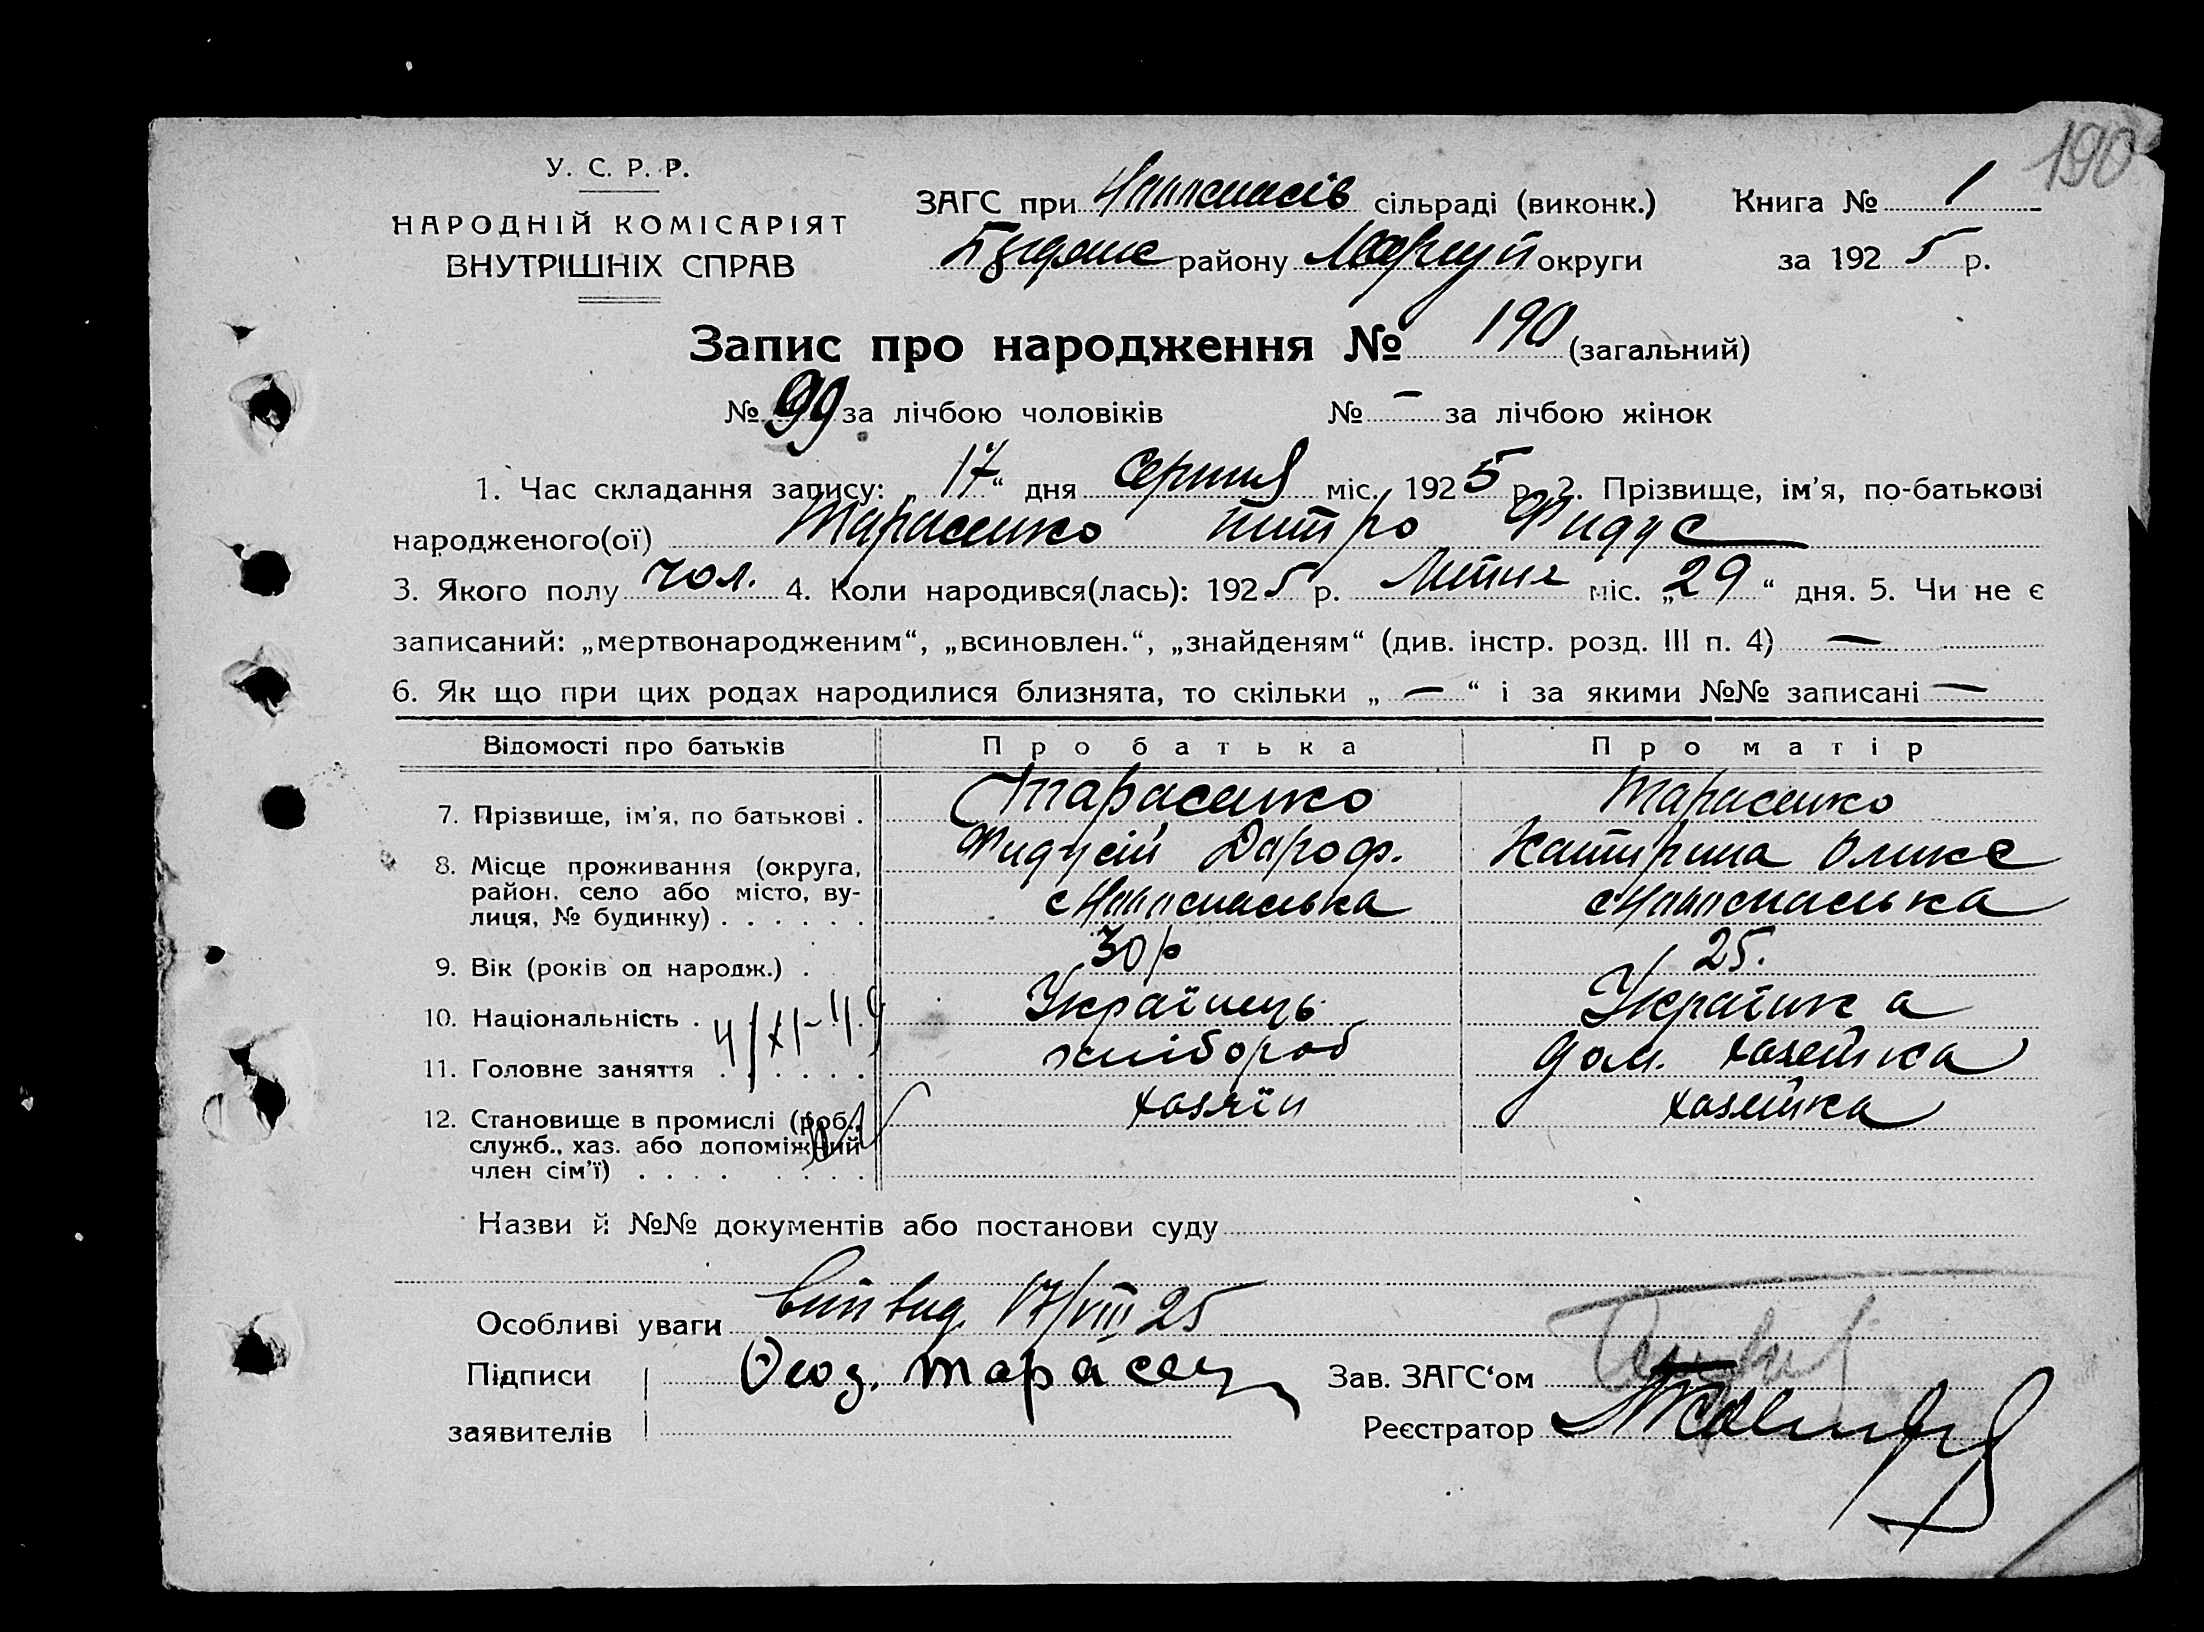 190
У. С. Р. Р.
НАРОДНІЙ КОМІСАРІЯТ
ВНУТРІШНІХ СПРАВ
ЗАГС при сільраді (виконк.) Книга № 1
району округи за 1925 р.
Запис про народження № 190 (загальний)
№ 99 за лічбою чоловіків № — за лічбою жінок
1. Час складання запису: „17“ дня Серпня міс. 1925 р. 2. Прізвище, ім'я, по-батькові
народженого(ої) Тарасенко Питро Фидус
3. Якого полу чол. 4. Коли народився(лась): 1925 р. Липня міс. „29“ дня. 5. Чи не є
записаний: „мертвонародженим“, „всиновлен.“, „знайденям“ (див. інстр. розд. III п. 4) —
6. Як що при цих родах народилися близнята, то скільки „—“ і за якими №№ записані —
Відомості про батьків Про батька Про матір
7. Прізвище, ім'я, по батькові . Тарасенко Тарасенко
Фидусій Дароф. Катирина Оликс
8. Місце проживання (округа, район, село або місто, вулиця, № будинку) . . . . . .
9. Вік (років од народж.) . 30 р 25.
10. Національність . Українець Українка
4/XI-49
11. Головне заняття . . . . . . хлібороб дом. хазейка
12. Становище в промислі (роб., служб., хаз. або допоміжний член сім'ї) . . . . . . . . хазяїн хазейка
Назви й №№ документів або постанови суду
Особливі уваги 17/VIII 25
Підписи Тарасен Зав. ЗАГС‘ом
заявителів Реєстратор